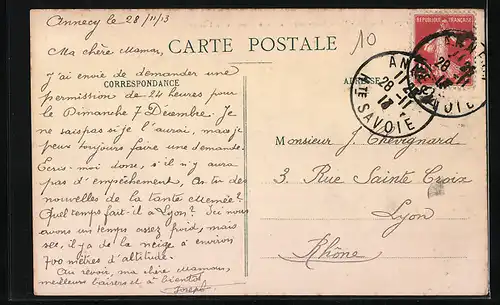 Annecy le 28/11/13
Ma chère Maman,
CARTE POSTALE
10
RÉPUBLIQUE FRANÇAISE
CORRESPONDANCE
ADRESSE
J'ai envie de demander une
permission de 24 heures pour
le Dimanche 7 Décembre. Je
ne sais pas si je l'aurai, mais je
peux toujours faire une demande.
Ecris-moi donc, s'il n'y aura
pas d'empêchement. As-tu des
nouvelles de la tante Memée?
Quel temps fait-il à Lyon? Ici nous
avons un temps assez froid, mais
sec, il y a de la neige à environ
700 mètres d'altitude.
Au revoir, ma chère Maman,
meilleurs baisers et à bientôt
Joseph
ANNECY
28-11
13
Hte SAVOIE
Monsieur J. Chevignard
3, Rue Sainte Croix
Lyon
Rhône